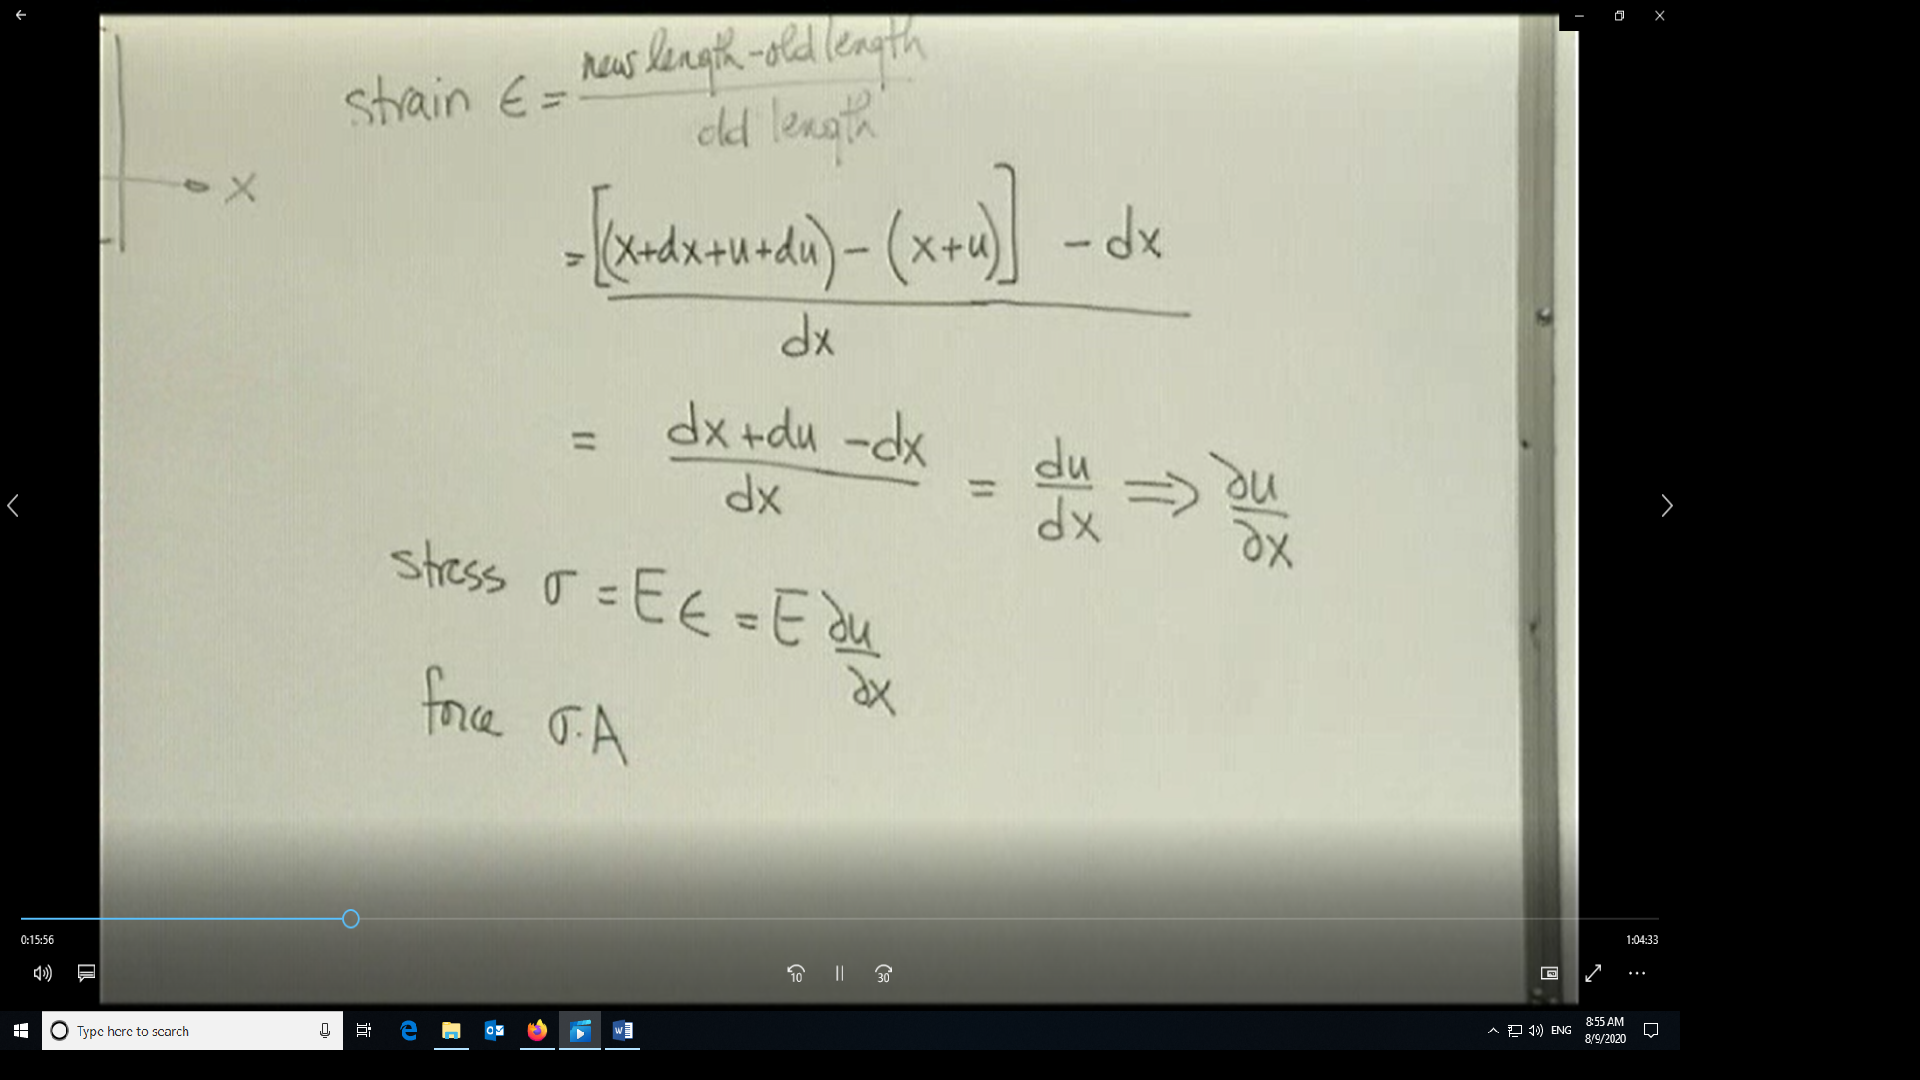 new length - old length
strain ϵ =
old length
x
= [(x+dx+u+du) - (x+u)] - dx
dx
= dx + du - dx = du ⟹ ∂u
dx dx ∂x
stress σ = E ϵ = E ∂u
∂x
force σ.A
0:15:56
1:04:33
10
30
Type here to search
ENG
8:55 AM
8/9/2020